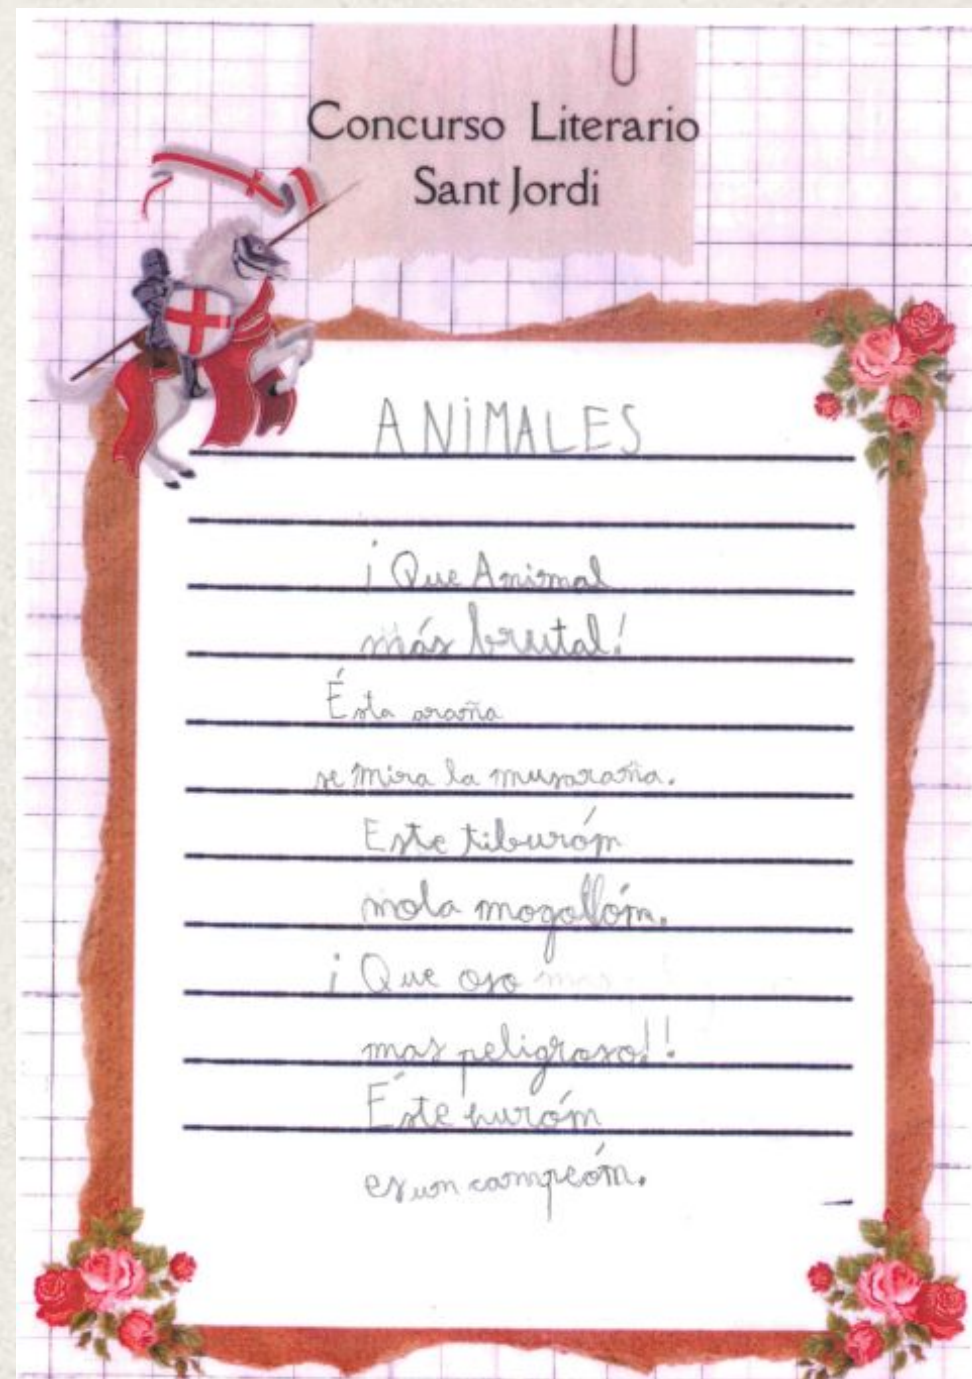 Concurso Literario
Sant Jordi
ANiMALES
¡Que Animal
más brutal!
Ésta araña
se mira la musaraña.
Este tiburón
mola mogollón.
¡Que oso mas
mas peligroso!!
Éste hurón
es un campeón.